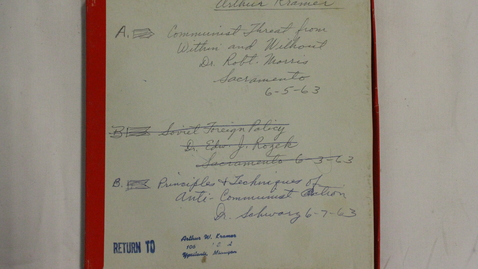 Arthur Kramer
A. Communist Threat from
Within and Without
Dr. Robt. Morris
Sacramento
6-5-63
B. Soviet Foreign Policy
Dr. Edw. J. Rozek
Sacramento 6-3-63
B. Principles & Techniques of
Anti-Communist Action
Dr. Schwarz 6-7-63
RETURN TO
Arthur W. Kramer
Ypsilanti, Michigan